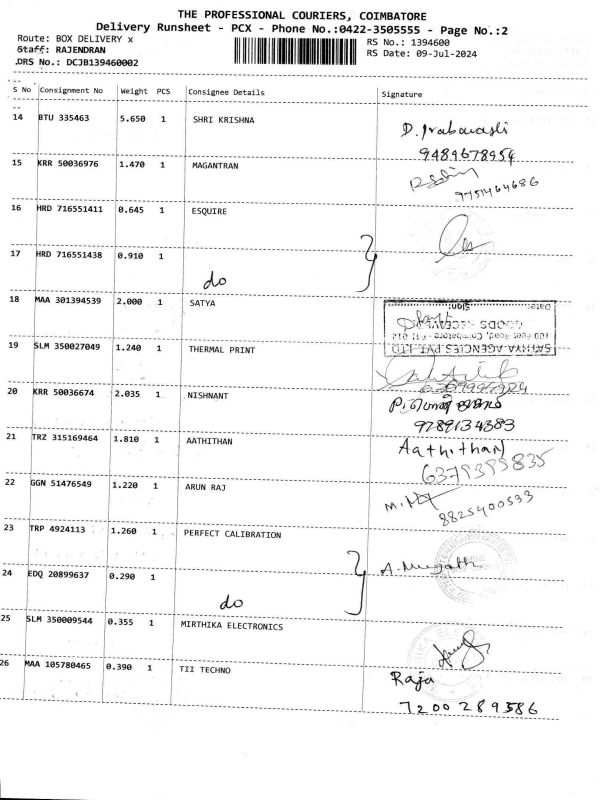 THE PROFESSIONAL COURIERS, COIMBATORE
Delivery Runsheet - PCX - Phone No.:0422-3505555 - Page No.:2
Route: BOX DELIVERY x
RS No.: 1394600
Staff: RAJENDRAN
RS Date: 09-Jul-2024
DRS No.: DCJB139460002
S No Consignment No Weight PCS Consignee Details Signature
14 BTU 335463 5.650 1 SHRI KRISHNA
9489678954
15 KRR 50036976 1.470 1 MAGANTRAN
9751464686
16 HRD 716551411 0.645 1 ESQUIRE
17 HRD 716551438 0.910 1
do
18 MAA 301394539 2.000 1 SATYA
Date: Sign:
GOODS RECEIVED
100 Feet Road, Coimbatore - 641 012
SATHYA AGENCIES PVT. LTD
19 SLM 350027049 1.240 1 THERMAL PRINT
20 KRR 50036674 2.035 1 NISHNANT
9789134383
21 TRZ 315169464 1.810 1 AATHITHAN
Aathithan
6379399835
22 GGN 51476549 1.220 1 ARUN RAJ
8825400533
23 TRP 4924113 1.260 1 PERFECT CALIBRATION
24 EDQ 20899637 0.290 1
do
25 SLM 350009544 0.355 1 MIRTHIKA ELECTRONICS
26 MAA 105780465 0.390 1 TII TECHNO
Raja
7200289586